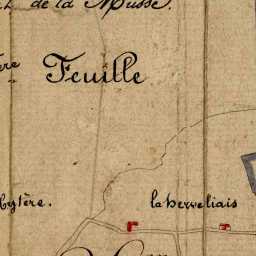 de la Musse.
ère
Feuille
bytère.
la herveliais